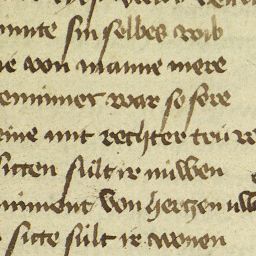 minnte sin selbes wib
ie von manne mere
en immer war so sere
eine mit rechter trü
sitten sült ir miwen
niment von herzen
sitte sült ir wonen